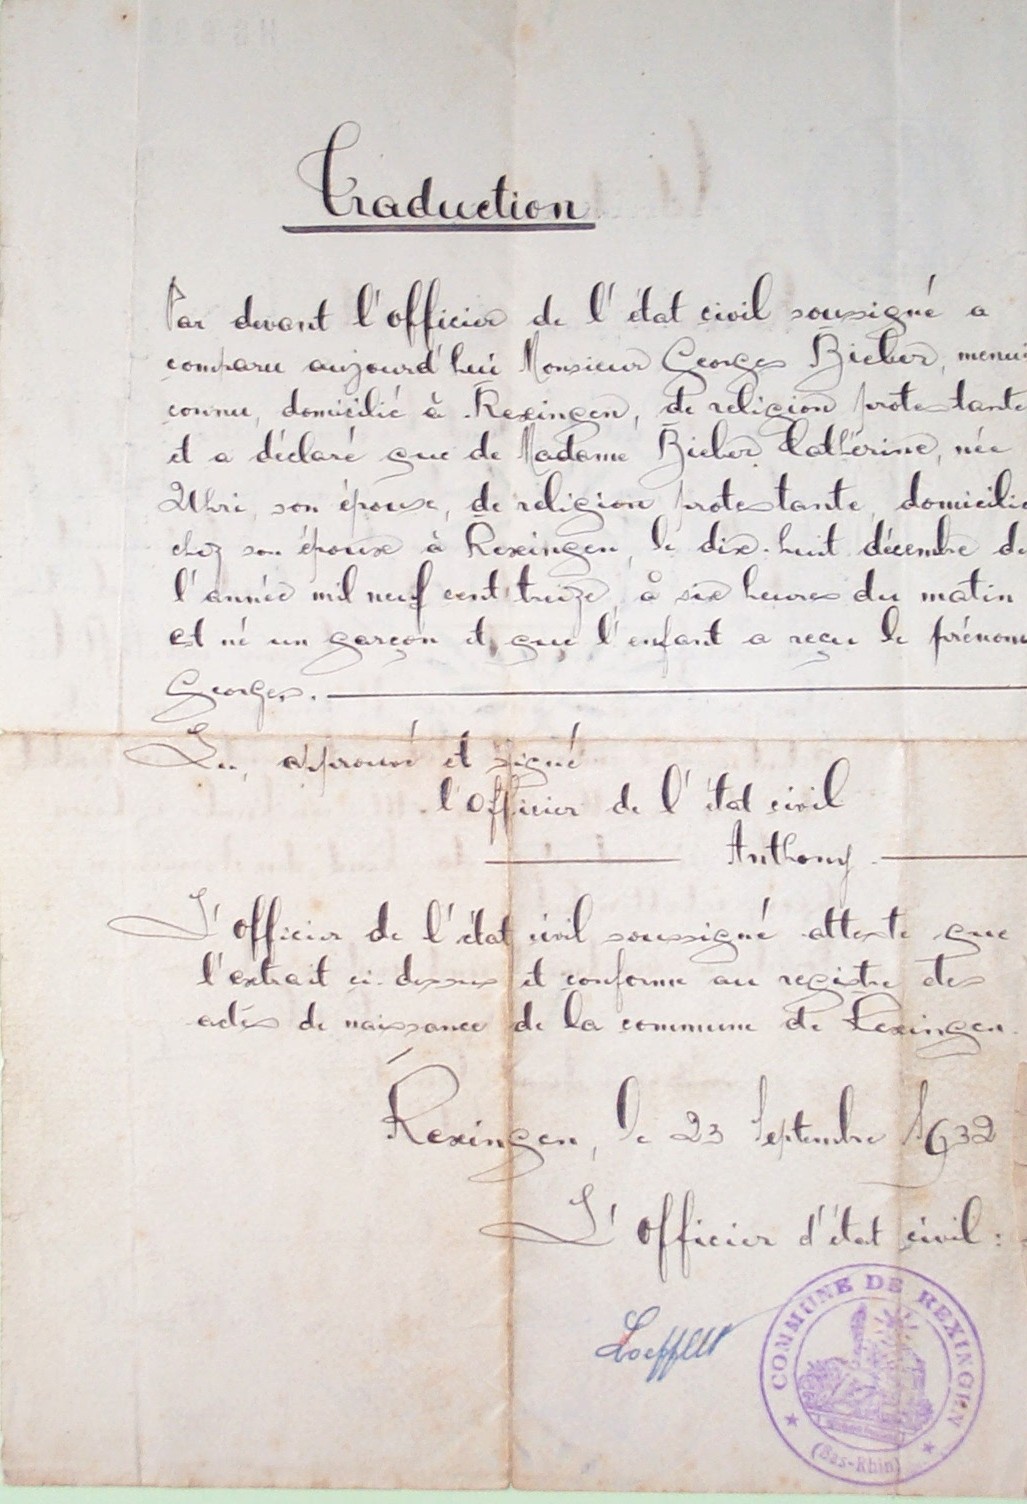 Traduction
Par devant l'officier de l'état civil soussigné a
comparu aujourd'hui Monsieur Georges Bieber, menui
connu, domicilié à Rexingen, de religion protestante
et a déclaré que de Madame Bieber Cathérine, née
Uhri, son épouse, de religion protestante, domicilié
chez son époux à Rexingen, le dix-huit décembre de
l'année mil neuf cent treize, à six heures du matin
est né un garçon et que l'enfant a reçu le prénom
Georges.
Lu, approuvé et signé
l'Officier de l'état civil
Anthony.
L'Officier de l'état civil soussigné atteste que
l'extrait ci-dessus et conforme au registre des
actes de naissance de la commune de Rexingen.
Rexingen, le 23 Septembre 1932
L'officier d'état civil:
Loeffler
COMMUNE DE REXINGEN
(Bas-Rhin)